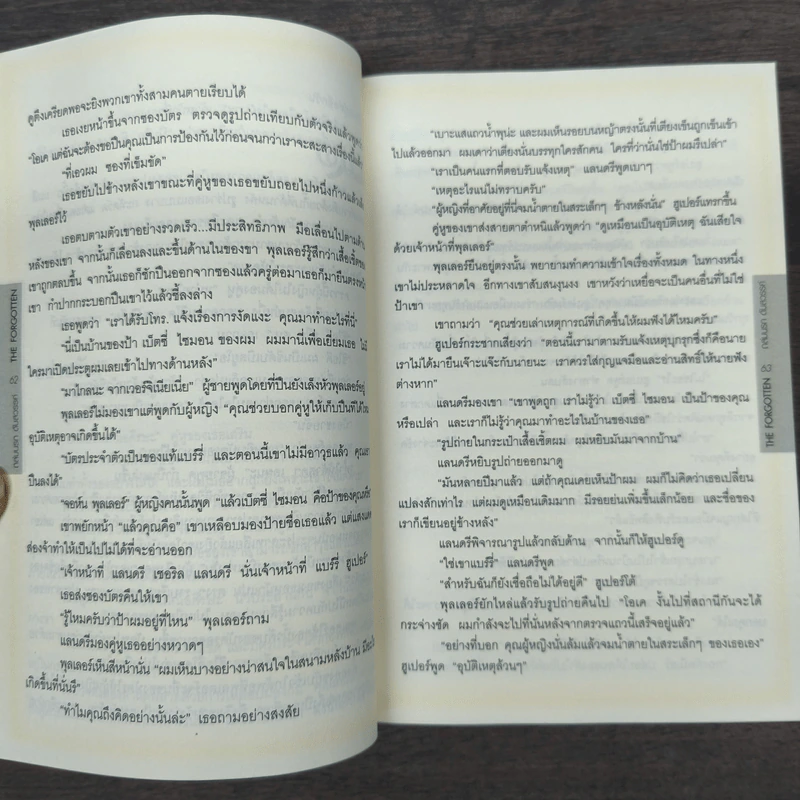 ดูตึงเครียดพอจะยิงพวกเขาทั้งสามคนตายเรียบได้
เธอเงยหน้าขึ้นจากซองบัตร ตรวจดูรูปถ่ายเทียบกับตัวจริงแล้วพูดว่า
"โอเค แต่ฉันจะต้องขอปืนคุณเป็นการป้องกันไว้ก่อนจนกว่าเราจะสะสางเรื่องนี้
"ที่เอวผม ซองที่เข็มขัด"
เธอขยับไปข้างหลังเขาขณะที่คู่หูของเธอขยับถอยไปหนึ่งก้าวแล้วเล็ง
พุลเลอร์ไว้
เธอตบตามตัวเขาอย่างรวดเร็ว...มีประสิทธิภาพ มือเลื่อนไปตามด้าน
หลังของเขา จากนั้นก็เลื่อนลงและขึ้นด้านในของขา พุลเลอร์รู้สึกว่าเสื้อเชิ้ตของ
เขาถูกตลบขึ้น จากนั้นเธอก็ชักปืนออกจากซองแล้วครู่ต่อมาเธอก็มายืนตรงหน้า
เขา กำปากกระบอกปืนเขาไว้แล้วชี้ลงล่าง
เธอพูดว่า "เราได้รับโทร. แจ้งเรื่องการงัดแงะ คุณมาทำอะไรที่นี่"
"นี่เป็นบ้านของป้า เบ็ตซี่ ไซมอน ของผม ผมมานี่เพื่อเยี่ยมเธอ ไม่มี
ใครมาเปิดประตูผมเลยเข้าไปทางด้านหลัง"
"มาไกลนะ จากเวอร์จิเนียเนี่ย" ผู้ชายพูดโดยที่ปืนยังเล็งหัวพุลเลอร์อยู่
พุลเลอร์ไม่มองเขาแต่พูดกับผู้หญิง "คุณช่วยบอกคู่หูให้เก็บปืนที่ได้ไหม
อุบัติเหตุอาจเกิดขึ้นได้"
"บัตรประจำตัวเป็นของแท้แบร์รี่ และตอนนี้เขาไม่มีอาวุธแล้ว คุณ
ปืนลงได้"
"จอห์น พุลเลอร์" ผู้หญิงคนนั้นพูด "แล้วเบ็ตซี่ ไซมอน คือป้าของคุณ
เขาพยักหน้า "แล้วคุณคือ" เขาเหลือบมองป้ายชื่อเธอแล้ว แต่แสงแดด
ส่องจ้าทำให้เป็นไปไม่ได้ที่จะอ่านออก
"เจ้าหน้าที่ แลนดรี เชอริล แลนดรี นั่นเจ้าหน้าที่ แบร์รี่ ฮูเปอร์"
เธอส่งซองบัตรคืนให้เขา
"รู้ไหมครับว่าป้าผมอยู่ที่ไหน" พุลเลอร์ถาม
แลนดรีมองคู่หูเธออย่างหวาดๆ
พุลเลอร์เห็นสีหน้านั่น "ผมเห็นบางอย่างน่าสนใจในสนามหลังบ้าน
เกิดขึ้นที่นั่นรึ"
"ทำไมคุณถึงคิดอย่างนั้นล่ะ" เธอถามอย่างสงสัย
THE FORGOTTEN
"เบาะแสแถวน้ำพุน่ะ และผมเห็นรอยบนหญ้าตรงนั้นที่เตียงเข็นถูกเข็นเข้า
ไปแล้วออกมา ผมเดาว่าเตียงนั่นบรรทุกใครสักคน ใครที่ว่านั่นใช่ป้าผมรึเปล่า"
"เราเป็นคนแรกที่ตอบรับแจ้งเหตุ" แลนดรีพูดเบาๆ
"เหตุอะไรแน่ไม่ทราบครับ"
"ผู้หญิงที่อาศัยอยู่ที่นี่จมน้ำตายในสระเล็กๆ ข้างหลังนั่น" ฮูเปอร์แทรกขึ้น
คู่หูของเขาส่งสายตาตำหนิแล้วพูดว่า "ดูเหมือนเป็นอุบัติเหตุ ฉันเสียใจ
ด้วยเจ้าหน้าที่พุลเลอร์"
พุลเลอร์ยืนอยู่ตรงนั้น พยายามทำความเข้าใจเรื่องทั้งหมด ในทางหนึ่ง
เขาไม่ประหลาดใจ อีกทางเขาสับสนงุนงง เขาหวังว่าเหยื่อจะเป็นคนอื่นที่ไม่ใช่
ป้าเขา
เขาถามว่า "คุณช่วยเล่าเหตุการณ์ที่เกิดขึ้นให้ผมฟังได้ไหมครับ"
ฮูเปอร์กระชากเสียงว่า "ตอนนี้เรามาตามรับแจ้งเหตุบุกรุกซึ่งก็คือนาย
เราไม่ได้มายืนเจ๊าะแจ๊ะกับนายนะ เราควรใส่กุญแจมือและอ่านสิทธิ์ให้นายฟัง
ต่างหาก"
แลนดรีมองเขา "เขาพูดถูก เราไม่รู้ว่า เบ็ตซี่ ไซมอน เป็นป้าของคุณ
หรือเปล่า และเราก็ไม่รู้ว่าคุณมาทำอะไรในบ้านของเธอ"
"รูปถ่ายในกระเป๋าเสื้อเชิ้ตผม ผมหยิบมันมาจากบ้าน"
แลนดรีหยิบรูปถ่ายออกมาดู
"มันหลายปีมาแล้ว แต่ถ้าคุณเคยเห็นป้าผม ผมก็ไม่คิดว่าเธอเปลี่ยน
แปลงสักเท่าไร แต่ผมดูเหมือนเดิมมาก มีรอยย่นเพิ่มขึ้นเล็กน้อย และชื่อของ
เราก็เขียนอยู่ข้างหลัง"
แลนดรีพิจารณารูปแล้วกลับด้าน จากนั้นก็ให้ฮูเปอร์ดู
"ใช่เขาแบร์รี่" แลนดรีพูด
"สำหรับฉันก็ยังเชื่อถือไม่ได้อยู่ดี" ฮูเปอร์โต้
พุลเลอร์ยักไหล่แล้วรับรูปถ่ายคืนไป "โอเค งั้นไปที่สถานีกันจะได้
กระจ่างชัด ผมกำลังจะไปที่นั่นหลังจากตรวจแถวนี้เสร็จอยู่แล้ว"
"อย่างที่บอก คุณผู้หญิงนั่นล้มแล้วจมน้ำตายในสระเล็กๆ ของเธอเอง"
ฮูเปอร์พูด "อุบัติเหตุล้วนๆ"
THE FORGOTTEN